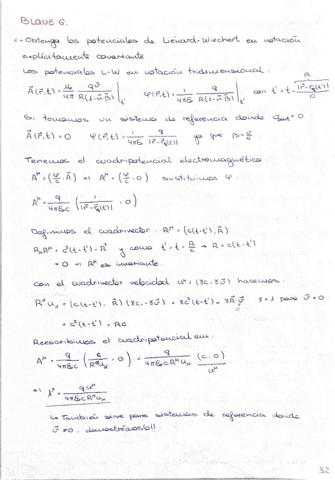 BLAVE 6.
- Obtenga los potenciales de Liénard-Wiechert en notación
explícitamente covariante.
Los potenciales L-W en notación tridimensional:
A⃗(r⃗,t) = μ₀/4π · qv⃗/R(1-n⃗β⃗)|t'   φ(r⃗,t) = 1/4πε₀ · q/R(1-n⃗β⃗)|t'   con t' = t - |r⃗-r⃗q(t')|/c
Si tomamos un sistema de referencia donde qvel = 0
A⃗(r⃗,t) = 0   φ(r⃗,t) = 1/4πε₀ · q/|r⃗-r⃗q(t')|   ya que β = v/c
Tenemos el cuadripotencial electromagnético
A^μ = (φ/c, A⃗) ⇒ A^μ = (φ/c, 0) sustituimos φ:
A^μ = q/4πε₀c (1/|r⃗-r⃗q(t')|, 0)
Definimos el cuadrivector: R^μ = (c(t-t'), R⃗)
RμR^μ = c²(t-t')² - R² y como t' = t - R/c → R = c(t-t')
= 0 ⇒ R^μ es invariante.
con el cuadrivector velocidad u^μ = (γc, -γv⃗) hacemos:
R^α uα = (c(t-t'), R⃗)(γc, -γv⃗) = γc²(t-t') - γR⃗·v⃗   γ = 1 para v⃗ = 0.
= c²(t-t') = Rc
Reescribimos el cuadripotencial em:
A^μ = q/4πε₀c (c/R^α uα, 0) = q/4πε₀cR^α uα (c, 0) u^μ
⇒ A^μ = q u^μ/4πε₀cR^α uα
↳ También sirve para sistemas de referencia donde
v⃗ ≠ 0, demostrémoslo!!
32